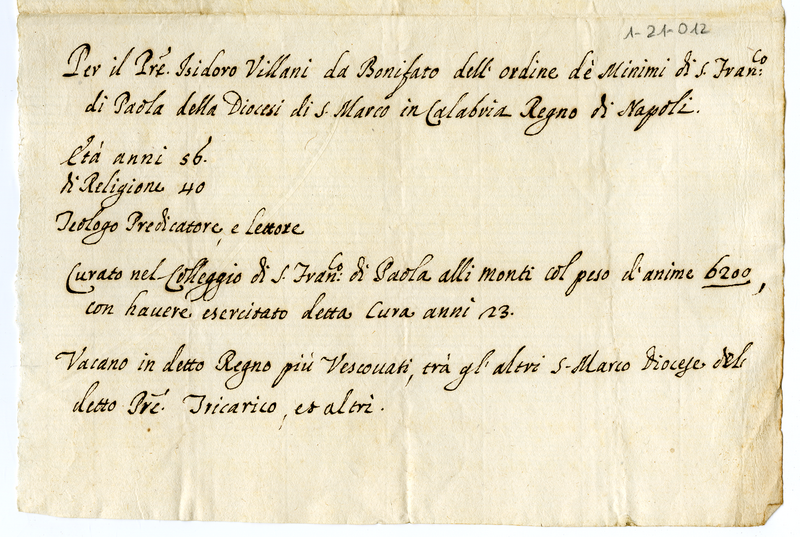 1-21-012
Per il Pr̃e. Isidoro Villani da Bonifato dell'ordine dè Minimi di S. Fran:co
di Paola della Diocesi di S. Marco in Calabria Regno di Napoli.
Età anni 56.
di Religione 40
Teologo Predicatore, e lettore
Curato nel Colleggio di S. Fran:co di Paola alli monti col peso d'anime 6200,
con hauere esercitato detta Cura anni 23.
Vacano in detto Regno più Vescouati, trà gl'altri S. Marco Diocese del
detto Pr̃e. Tricarico, et altri.